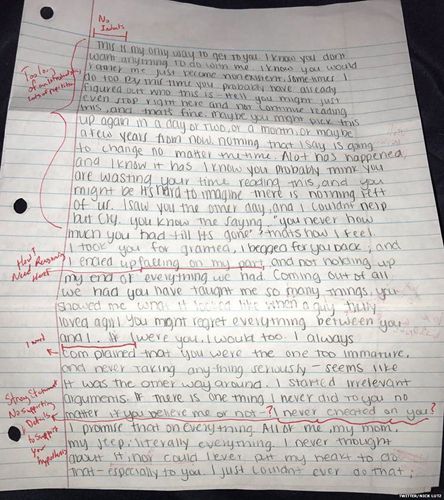 No
Indents
This is my only way to get to you. I know you don't
want anything to do with me. I know you would
rather me just become nonexistent. Sometimes I
do too. By this time you probably have already
figured out who this is - hell you might just
even stop right here and not continue reading
this, and that's fine. Maybe you might pick this
up again in a day or two, or a month, or maybe
a few years from now. Nothing that I say is going
to change no matter the time. Alot has happened
and I know it has. I know you probably think you
are wasting your time reading this, and you
might be. It's hard to imagine there is nothing left
of us. I saw you the other day, and I couldnt help
but cry. You know the saying, "you never how
much you had till its gone" thats how I feel.
I took you for granted, I begged for you back, and
I ended up failing on my part, and not holding up
my end of everything we had. Coming out of all
we had you have taught me so many things, you
showed me what it looked like when a guy fully
loved a girl. You might regret everything between you
and I. If I were you, I would too. I always
complained that you were the one too immature,
and never taking anything seriously - seems like
it was the other way around. I started irrelevant
arguments. If there is one thing I never did to you no
matter if you believe me or not -? I never cheated on you?
I promise that on everything. All of me, my mom,
my jeep, literally everything. I never thought
about it, nor could I ever put my heart to do
that - especially to you. I just couldnt ever do that;
Too long
of an
How?
Need
Here
1 word
Strong Statement
No supporting
Details
to support
your
hypothesis
TWITTER/NICK LUTZ